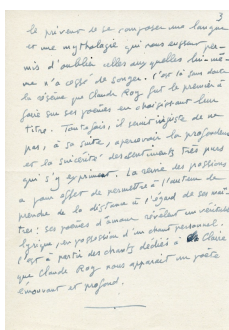 3
le prévenir de se composer une langue
et une mythologie qui nous eussent per-
mis d'oublier celles auxquelles lui-mê-
me n'a cessé de songer. C'est là sans doute
la réserve que Claude Roy fut le premier à
faire sur ses poésies en choisissant leur
titre. Toutefois, il serait injuste de ne
pas, à sa suite, apercevoir la profondeur
et la sincérité des sentiments très purs
qui s'y expriment. La reprise des pastiches
a pour effet de permettre à l'auteur de
prendre de la distance à l'égard de ses maî-
tres : ses poèmes d'amour révèlent un véritable
lyrique, en possession d'un chant personnel.
C'est à partir des chants dédiés à Claire
que Claude Roy nous apparaît un poète
émouvant et profond.